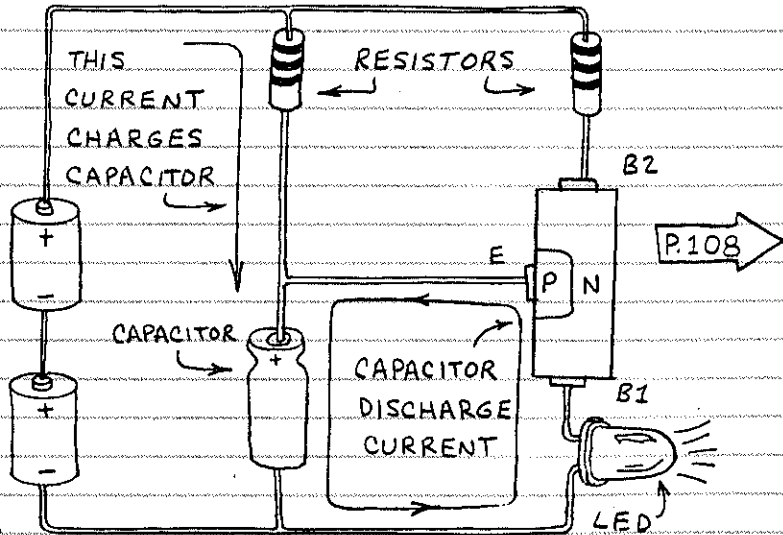 THIS
CURRENT
CHARGES
CAPACITOR
RESISTORS
B2
P.108
+
-
E
P N
CAPACITOR
+
CAPACITOR
DISCHARGE
CURRENT
+
-
B1
LED